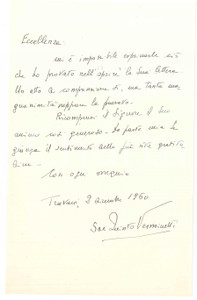 Eccellenza
mi è impossibile esprimere ciò
che ho provato nell'aprire la Sua lettera
Un atto di comprensione sì, ma tanta ma
gnanimità neppure la pensavo.
Ricompensi il Signore il Suo
animo così generoso. La parte mia le
giunga il sentimento della più viva gratitu
dine.
Con ogni ossequio
2 dicembre 1960
Sac.